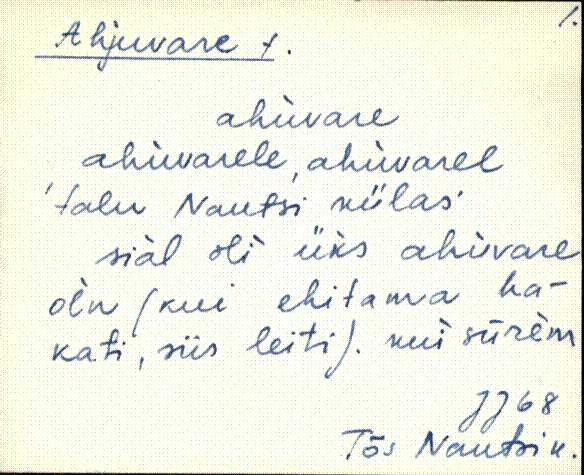 1.
Ahjuvare t.
ahùvare
ahùvarele, ahùvarel
'talu Nautsi külas'
siàl oli üks ahùvare
oĺn (kui ehitama ha-
kati, siis leiti). kui sürèm
JJ 68
Tõs Nautsi k.